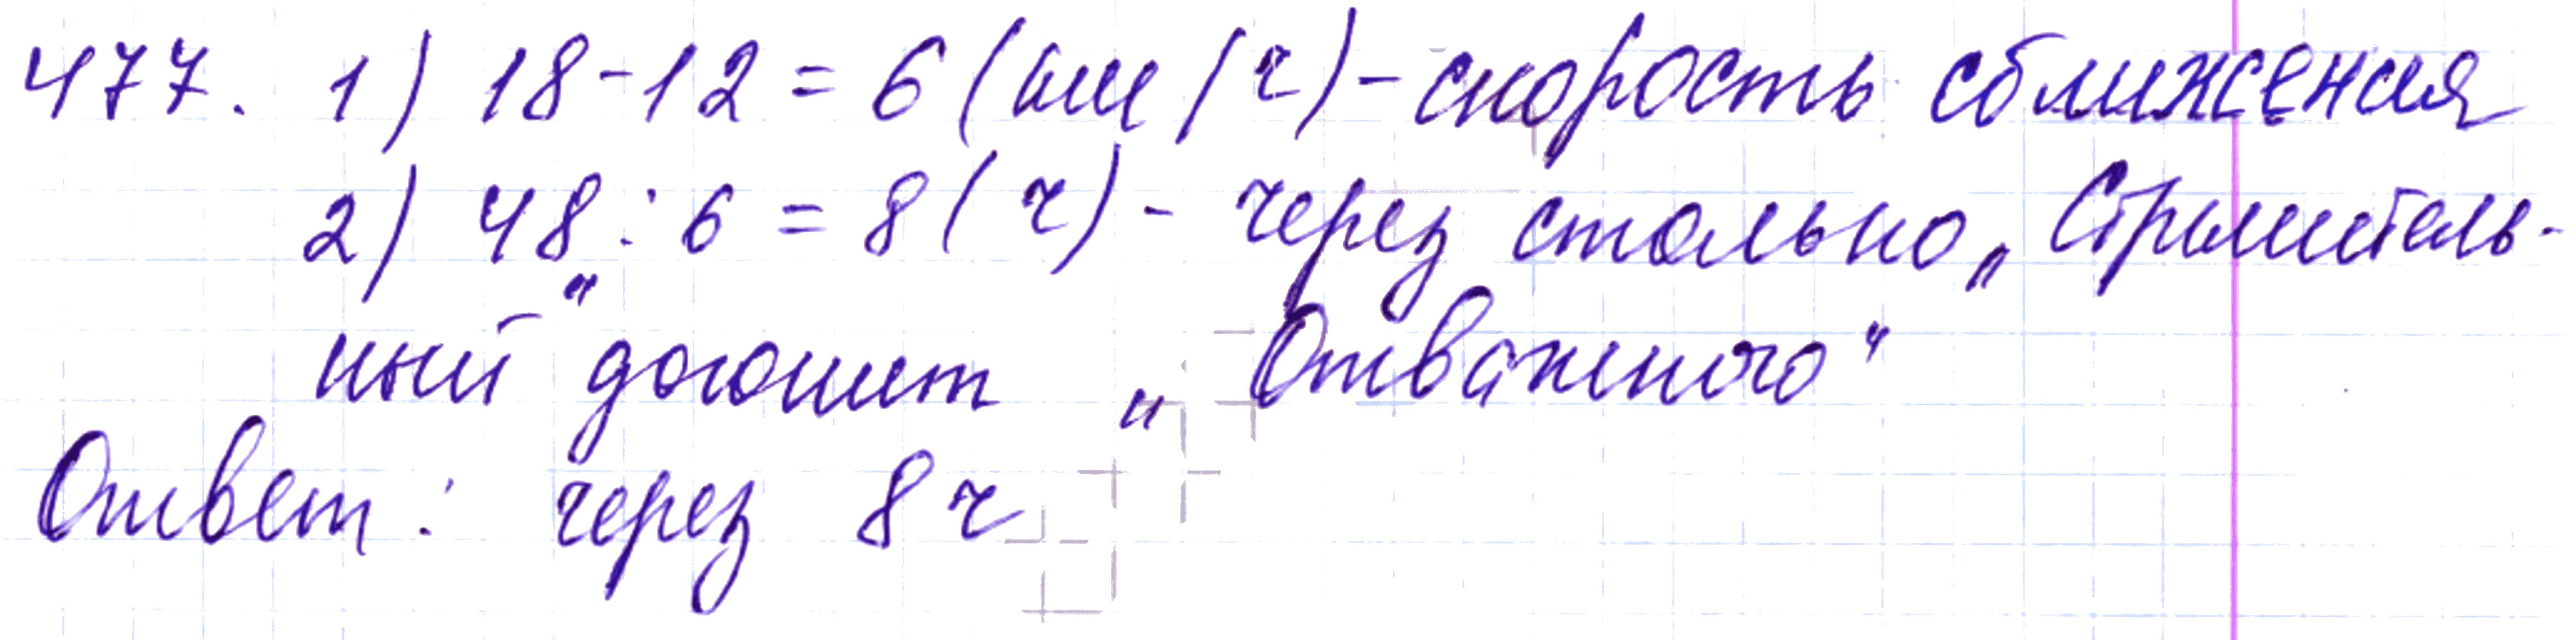 477. 1) 18-12 = 6 (км/ч) - скорость сближения
2) 48 : 6 = 8 (ч) - через столько „Стремитель-
ный" догонит „Отважного"
Ответ: через 8 ч